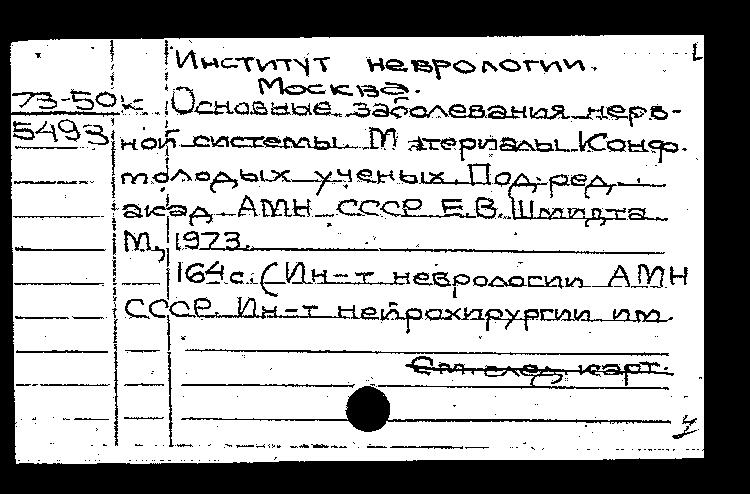 Институт неврологии.
Москва.
73-50к Основные заболевания нерв-
5493 ной системы. Материалы Конф.
молодых ученых. Под. ред.
акад. АМН СССР Е.В. Шмидта
М., 1973.
164с. (Ин-т неврологии АМН
СССР. Ин-т нейрохирургии им.
См. след. карт.